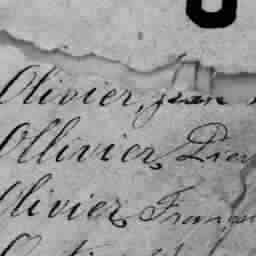 Olivier, Jean
Ollivier, Pier
Olivier, Franç